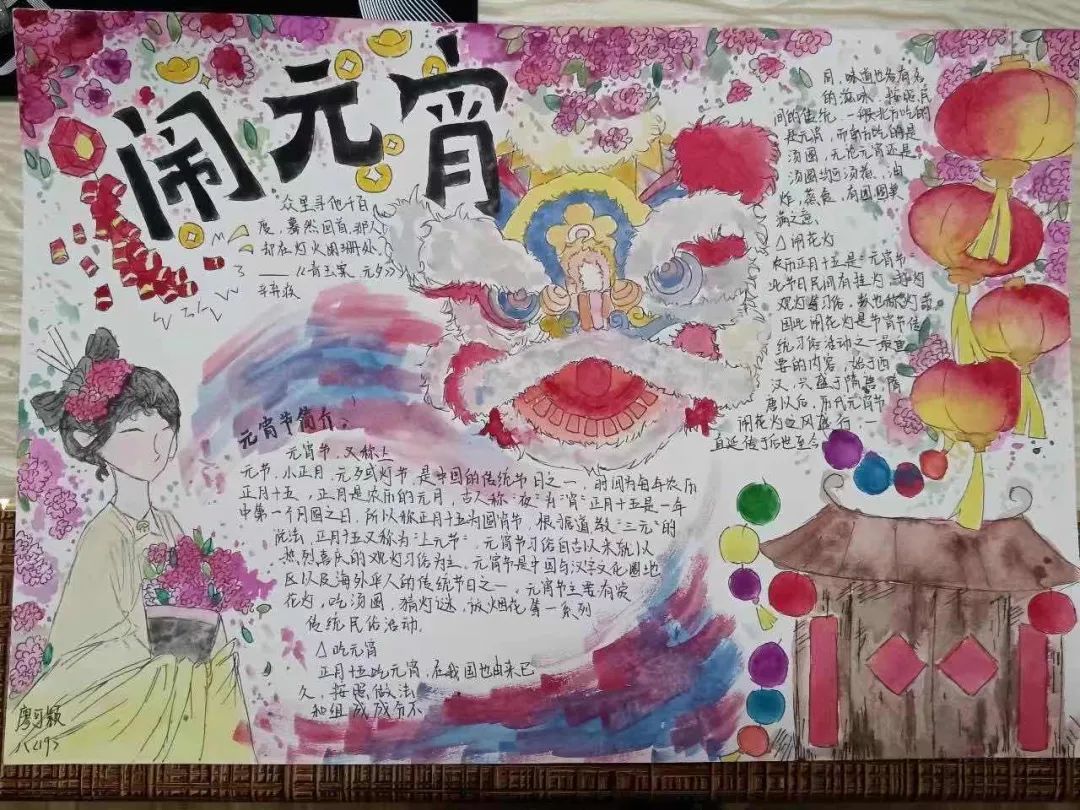 闹元宵
众里寻他千百
度，蓦然回首，那人
却在灯火阑珊处
——《青玉案·元夕》
辛弃疾
元宵节简介：
元宵节，又称上
元节，小正月，元夕或灯节，是中国的传统节日之一，时间为每年农历
正月十五，正月是农历的元月，古人称"夜"为"宵"正月十五是一年
中第一个月圆之日，所以称正月十五为元宵节，根据道教"三元"的
说法，正月十五又称为"上元节"，元宵节习俗自古以来就以
热烈喜庆的观灯习俗为主，元宵节是中国与汉字文化圈地
区以及海外华人的传统节日之一，元宵节主要有赏
花灯，吃汤圆，猜灯谜，放烟花等一系列
传统民俗活动。
△吃元宵
正月十五吃元宵，在我国也由来已
久，按照做法
和组成成分不
同，味道也各有
的滋味，按照
间的
是元宵，而南方吃的是
汤圆，无论元宵还是
汤圆均可汤煮，油
炸，蒸食，有团圆美
满之意。
△闹花灯
农历正月十五是"元宵节"
此节日民间有挂灯
观灯习俗，故也称灯节
因此闹花灯是节传
统习俗活动之一最重
要的内容，始于西
汉，兴盛于隋唐，隋
唐以后，历代元宵节
闹花灯之风盛行，一
直延传于后世至今